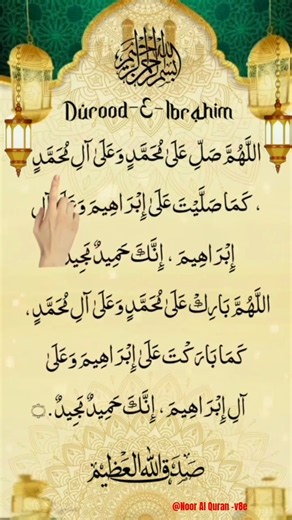 بسم الله الرحمن الرحيم
Durood-E-Ibrahim
اللَّهُمَّ صَلِّ عَلَىٰ مُحَمَّدٍ وَعَلَىٰ آلِ مُحَمَّدٍ
، كَمَا صَلَّيْتَ عَلَىٰ إِبْرَاهِيمَ وَعَلَىٰ آلِ
إِبْرَاهِيمَ ، إِنَّكَ حَمِيدٌ مَجِيدٌ
اللَّهُمَّ بَارِكْ عَلَىٰ مُحَمَّدٍ وَعَلَىٰ آلِ مُحَمَّدٍ ،
كَمَا بَارَكْتَ عَلَىٰ إِبْرَاهِيمَ وَعَلَىٰ
آلِ إِبْرَاهِيمَ ، إِنَّكَ حَمِيدٌ مَجِيدٌ .
صدق الله العظيم
@Noor Al Quran -v8e